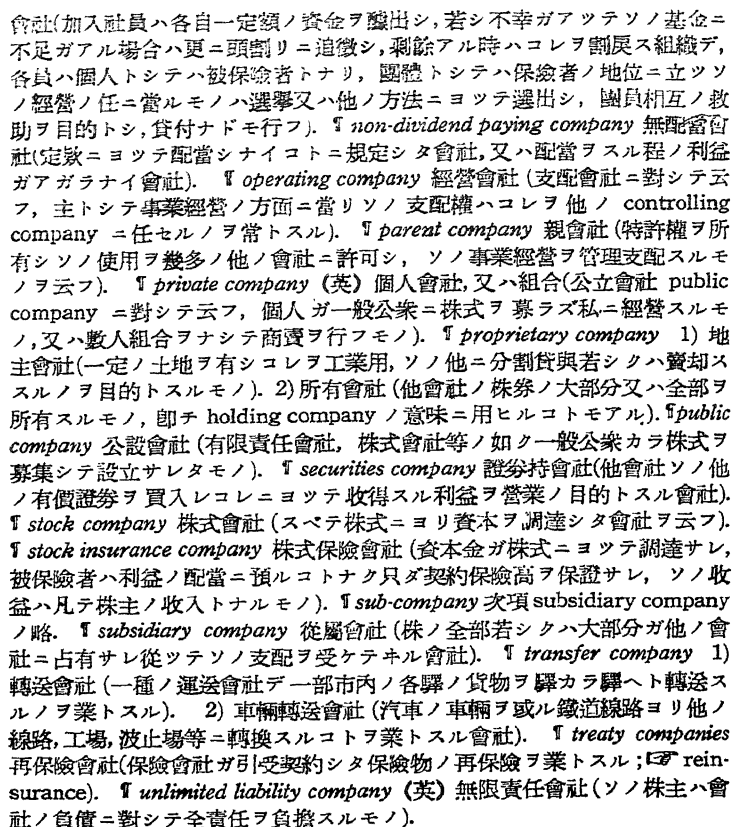 會社(加入社員ハ各自一定額ノ資金ヲ醵出シ, 若シ不幸ガアツテソノ基金ニ
不足ガアル場合ハ更ニ頭割リニ追徴シ, 剩餘アル時ハコレヲ割戻ス組織デ,
各員ハ個人トシテハ被保險者トナリ, 團體トシテハ保險者ノ地位ニ立ツソ
ノ經營ノ任ニ當ルモノハ選擧又ハ他ノ方法ニヨツテ選出シ, 團員相互ノ救
助ヲ目的トシ, 貸付ナドモ行フ). ¶ non-dividend paying company 無配當會
社(定款ニヨツテ配當シナイコトニ規定シタ會社, 又ハ配當ヲスル程ノ利益
ガアガラナイ會社). ¶ operating company 經營會社 (支配會社ニ對シテ云
フ, 主トシテ事業經營ノ方面ニ當リソノ支配權ハコレヲ他ノ controlling
company ニ任セルノヲ常トスル). ¶ parent company 親會社 (特許權ヲ所
有シソノ使用ヲ幾多ノ他ノ會社ニ許可シ, ソノ事業經營ヲ管理支配スルモ
ノヲ云フ). ¶ private company 《英》 個人會社, 又ハ組合(公立會社 public
company ニ對シテ云フ, 個人ガ一般公衆ニ株式ヲ募ラズ私ニ經營スルモ
ノ, 又ハ數人組合ヲナシテ商賣ヲ行フモノ). ¶ proprietary company 1) 地
主會社(一定ノ土地ヲ有シコレヲ工業用, ソノ他ニ分割貸與若シクハ賣却ス
スルノヲ目的トスルモノ). 2) 所有會社 (他會社ノ株券ノ大部分又ハ全部ヲ
所有スルモノ, 卽チ holding company ノ意味ニ用ヒルコトモアル). ¶ public
company 公設會社 (有限責任會社, 株式會社等ノ如ク一般公衆カラ株式ヲ
募集シテ設立サレタモノ). ¶ securities company 證券持會社(他會社ソノ他
ノ有價證券ヲ買入レコレニヨツテ收得スル利益ヲ營業ノ目的トスル會社).
¶ stock company 株式會社 (スベテ株式ニヨリ資本ヲ調達シタ會社ヲ云フ).
¶ stock insurance company 株式保險會社 (資本金ガ株式ニヨツテ調達サレ,
被保險者ハ利益ノ配當ニ預ルコトナク只ダ契約保險高ヲ保證サレ, ソノ收
益ハ凡テ株主ノ收入トナルモノ). ¶ sub-company 次項 subsidiary company
ノ略. ¶ subsidiary company 從屬會社 (株ノ全部若シクハ大部分ガ他ノ會
社ニ占有サレ從ツテソノ支配ヲ受ケテヰル會社). ¶ transfer company 1)
轉送會社 (一種ノ運送會社デ一部市内ノ各驛ノ貨物ヲ驛カラ驛ヘト轉送ス
ルノヲ業トスル). 2) 車輛轉送會社 (汽車ノ車輛ヲ或ル鐵道線路ヨリ他ノ
線路, 工場, 波止場等ニ轉換スルコトヲ業トスル會社). ¶ treaty companies
再保險會社(保險會社ガ引受契約シタ保險物ノ再保險ヲ業トスル; ☞ rein-
surance). ¶ unlimited liability company 《英》 無限責任會社 (ソノ株主ハ會
社ノ負債ニ對シテ全責任ヲ負擔スルモノ).